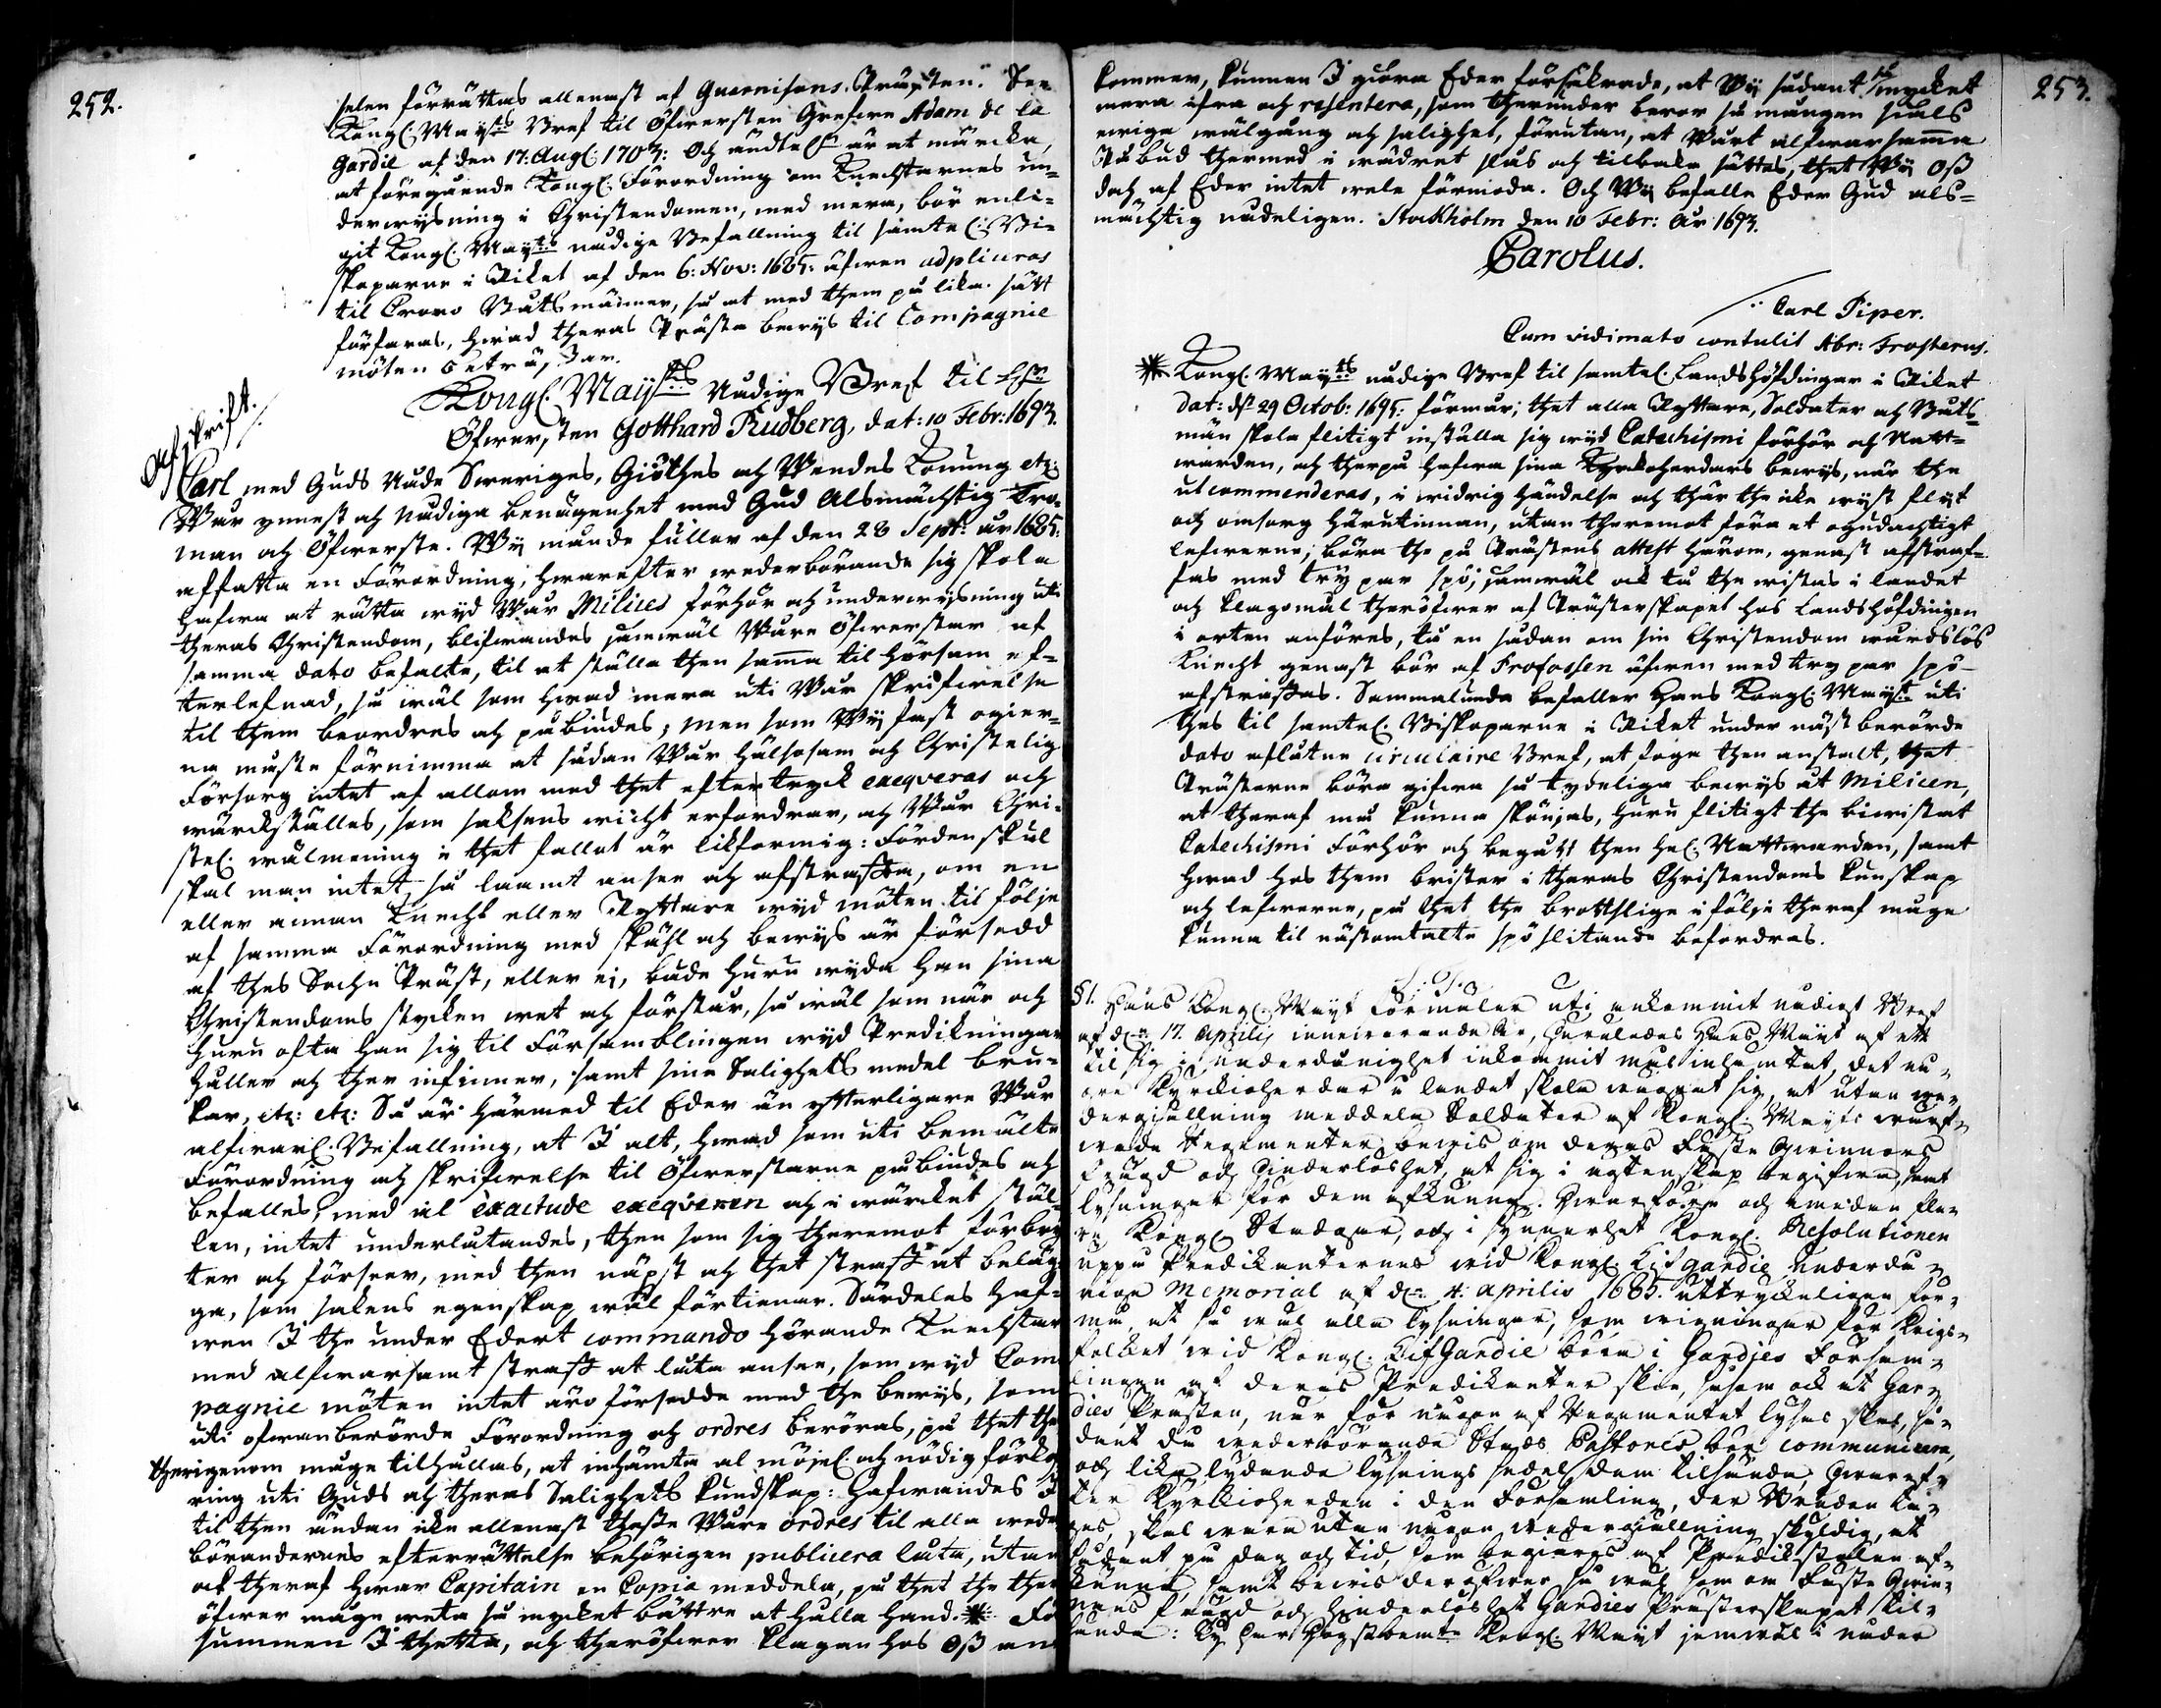 252.
selen förrättas allenast af Guarnisons Prästen. See
Kongl. Mayts Bref til Öfwersten Grefwe Adam de la
Gardie af den 17: Augl: 1703: Och ändtel:n är at märcka,
at föregående Kongl. Förordning om Knechtarnes un=
derwysning i Christendomen, med mera, bör enli=
git Kongl. Mayts nådige Befallning til samtel: Bi=
skoparne i Riket af den 6: Nov: 1685: äfwen adpliceras
til Crono Båtsmänner, så at med them på lika sätt
förfares, hwad theras Prästa bewys til Compagnie
möten beträffar.
Afskrift.
Kongl. Mayts Nådige Bref til
Öfwersten Gotthard Rudberg, dat: 10 Febr: 1693.
Carl med Guds Nåde Sweriges, Giöthes och Wendes Konung etc:
Wår ynnest och Nådiga benägenhet med Gud Alsmächtig Tro=
man och Öfwerste. Wy månde fuller af den 28 Sept: år 1685:
affatta en Förordning, hwarefter wederbörande sig skola
hafwa at rätta wyd Wår Milices förhör och underwysning uti
theras Christendom, blifwandes jemwäl Wåre Öfwerstar af
samma dato befalte, til at ställa then samma til hörsam ef=
terlefnad, så wäl som hwad mera uti Wår skrifwelse
til them beordres och påbindes; men som Wy fast ogier=
na måste förnimma at sådan Wår hälsosam och Christelig
Försorg intet af allom med thet eftertryck exeqveras och
wärckställes, som saksens wicht erfordrar, och Wår Chri=
stel: wälmening i thet fallet är likformig: Fördenskul
skal man intet så laamt ansee och afstraffa, om en
eller annan Knecht eller Ryttare wyd möten til följe
af samma Förordning med skähl och bewys är försedd
af thes Sochn Präst, eller ej, både huru wyda han sina
Christendoms stycken wet och förstår, så wäl som när och
huru ofta han sig til Församblingen wyd Predikningar
håller och ther infinner, samt sina Salighets medel bru=
kar, etc: etc: Så är härmed til Eder än ytterligare Wår
alfwarl: Befallning, at I alt, hwad som uti bemälte
Förordning och skrifwelse til Öfwerstarne påbindes och
befalles, med all exactude exeqveren och i wärcket stäl=
len, intet underlåtandes, then som sig theremot förbry
ter och förseer, med then näpst och thet straff at beläg
ga, som sakens egenskap wäl förtienar. Särdeles haf=
wen I the under Edert commando hörande Knechtar
med alfwarsamt straff at låta ansee, som wyd Com
pagnie möten intet äro försedde med the bewys, som
uti ofwanberörde Förordning och ordres beröres, på thet the
therigenom måge tilhållas, at inhämta al möjel: och nödig förkla
ring uti Guds och theras Salighets kundskap: Hafwandes I
til then ändan icke allenast theße Wåre ordres til alla wede
börandernes efterrättelse behörigen publicera låta, utan
ock theraf hwar Capitain en Copia meddela, på thet the ther
öfwer måge weta så mycket bättre at hålla hand. * Fö
summen I thetta, och theröfwer klagan hos Oß an
253.
kommer, kunnen I giöra Eder försäkrade, at Wy sådant så mycket
mera ifra och resentera, som therunder beror så mången siäls
ewiga wälgång och salighet, förutan, at Wårt alfwarsamma
Påbud thermed i wädret slås och tilbaka sättes, thet Wy Oß
doch af Eder intet wele förmoda. Och Wy befalle Eder Gud als=
mächtig nådeligen. Stockholm den 10 Febr: Ar 1693.
Carolus.
Carl Piper.
Cum vidimato contulit Abr: Frosterus.
* Kongl. Mayts nådige Bref til samtel. Landshöfdingar i Riket
dat: d. 29 Octob: 1695: förmår; thet alla Ryttare, Soldater och Båts
män skola flitigt inställa sig wyd Catechismi förhör och Natt=
warden, och therpå hafwa sina Kyrckoherdars bewys, när the
utcommenderas, i widrig händelse och thär the icke wyst flyt
och omsorg härutinnan, utan theremot föra et ogudachtigt
lefwerne, böra the på Prästens attest härom, genast afstraf=
fas med try par spö; jemwäl ock tå the wistas i landet
och klagomål theröfwer af Prästerskapet hos Landshöfdingen
i orten anföres, tå en sådan om sin Christendom wårdslös
Knecht genast bör af Profossen äfwen med try par spö
afstraffas. Sammalunda befaller Hans Kongl: Mayt uti
thes til samtel. Biskoparne i Riket under näst berörde
dato aflåtne circulaire Bref, at foga then anstalt, thet
Prästerne böra gifwa så tydeliga bewys åt Milicen,
at theraf må kunna skönjas, huru flitigt the biwistat
Catechismi Förhör och begådt then hel. Nattwarden, samt
hwad hos them brister i theras Christendoms kunskap
och lefwerne, på thet the brottslige i följe theraf måge
kunna til nästomtalte spö slitande befordras.
§1. Hans Kongl. Mayt förmäler uti ankommit nådigt Bref
af d. 17. Aprilis innewarande åhr, huruledes Hans Mayt af ett
til sig i underdånighet inkommit
Kyrckioherdar i landet skola wägrat sig, at utan we=
dergiällning meddela Soldater af Kongl. Mayts wärf=
wade Regementer bewis om deras Fäste Qwinnors
Frägd och hinderlöshet, at sig i ägtenskap begifwa, samt
lysningar för dem afkunna. Hwarföre och emedan fle=
re Kongl. Stadgar, och i synnerhet Kongl. Resolutionen
uppå Predikanternes wid Kongl. Lifgardie underdå=
nige Memorial af d. 4. Aprilis 1685. uttryckeligen för=
må, at så wäl alla lysningar, som wigningar för Krigs=
folcket wid Kongl. LifGardie böra i Gardies Försam=
lingen af deras Predikanter skie, såsom ock at Gar=
dies Prästen, när för någon af Regementet lysas skal, så=
dant då wederbörande Stads Pastores bör communicera,
och lika lydande lysnings sedel dem tilsända, hwaref=
ter Kyrkioherden i den Församling, der Bruden tie=
nes, skal wara utan någon wedergiällning skyldig, at
sådant på dag och tid, som begiäres af Predikstolen af=
kunna, samt bewis deröfwer så wäl som om Fäste Qwin=
nans Frägd och hinderlöshet Gardies Prästerskapet til=
sända: Ty har Högstbemte Kongl. Mayt jemwäl i nåder